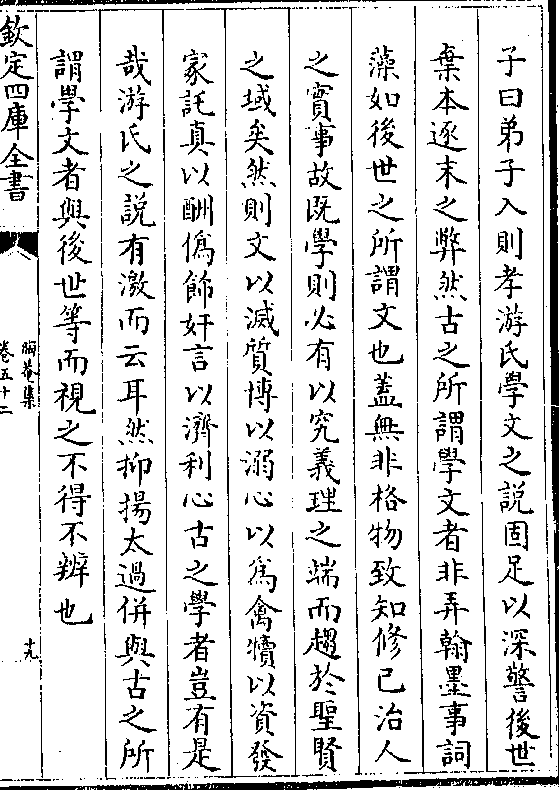 子曰弟子入則孝游氏學文之説固足以深警後世
棄本逐末之弊然古之所謂學文者非弄翰墨事詞
藻如後世之所謂文也蓋無非格物致知修己治人
之實事故既學則必有以究義理之端而趨於聖賢
之域矣然則文以滅質博以溺心以為禽犢以資發
家託真以酬偽飾奸言以濟利心古之學者豈有是
哉游氏之説有激而云耳然抑揚太過併與古之所
謂學文者與後世等而視之不得不辨也
欽定四庫全書
晦菴集
卷五十二
十九